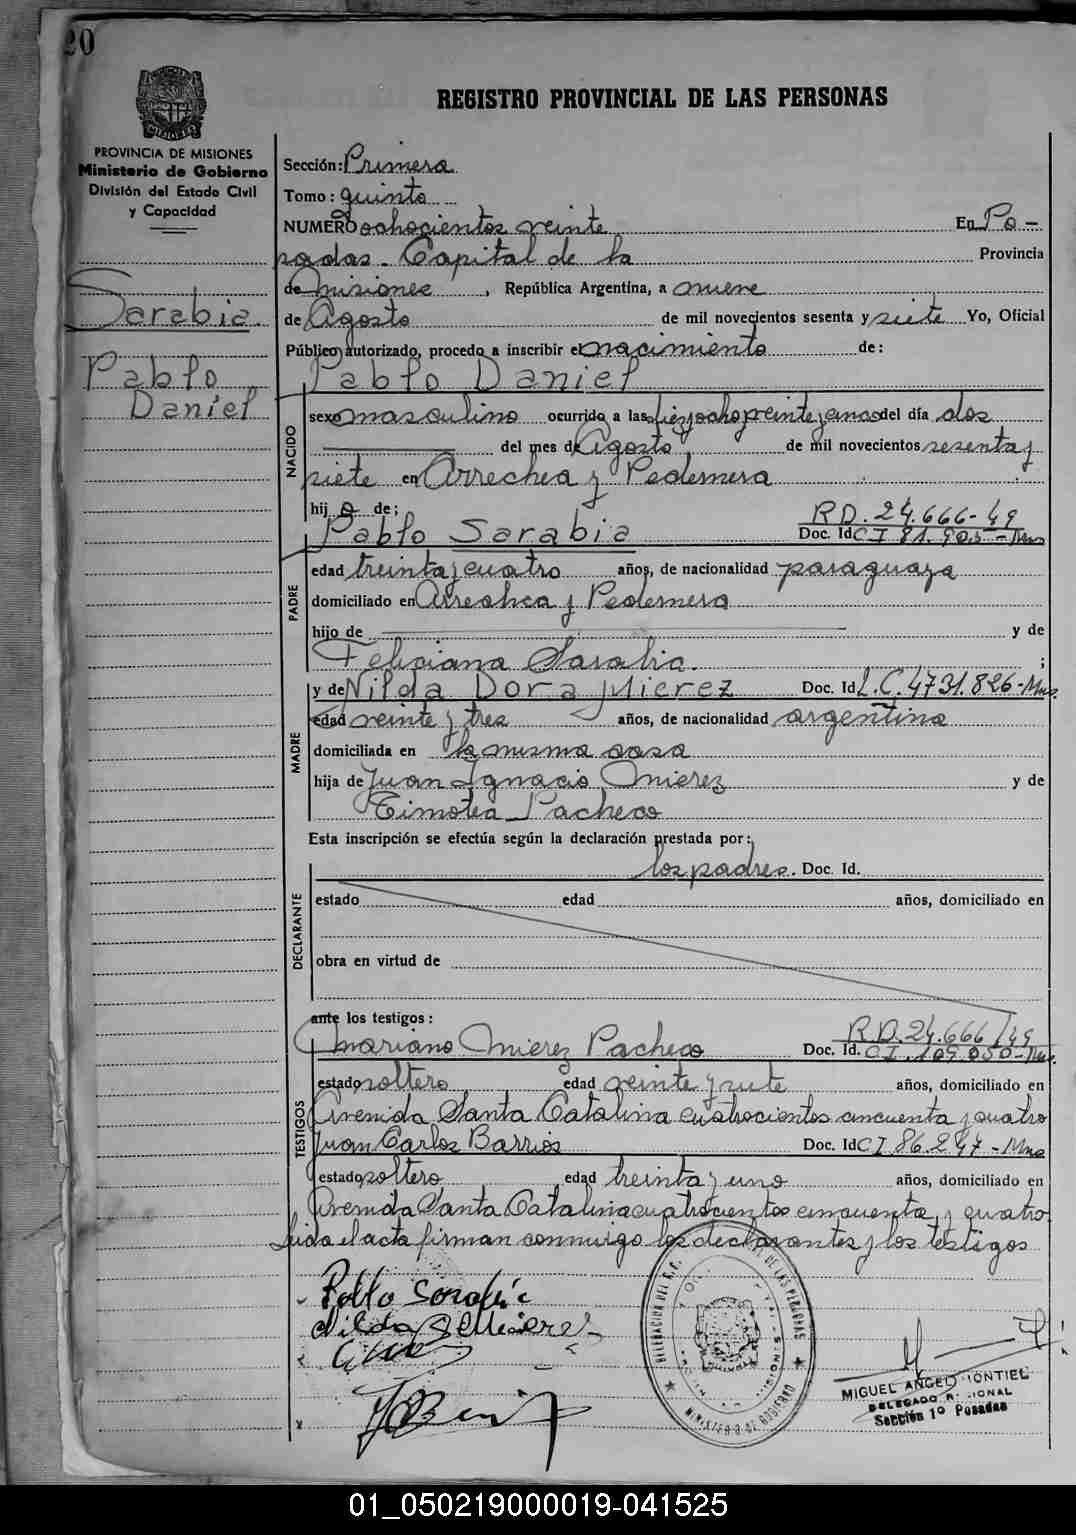 20
REGISTRO PROVINCIAL DE LAS PERSONAS
PROVINCIA DE MISIONES
Ministerio de Gobierno
División del Estado Civil
y Capacidad
Sarabia
Pablo
Daniel
Sección: Primera
Tomo: quinto
NUMERO ochocientos veinte En Po-
sadas. Capital de la Provincia
de Misiones, República Argentina, a nueve
de Agosto de mil novecientos sesenta y siete Yo, Oficial
Público autorizado, procedo a inscribir el nacimiento de:
Pablo Daniel
NACIDO
sexo masculino ocurrido a las diez y ocho y veinte y cinco del día dos
del mes de Agosto de mil novecientos sesenta y
siete en Arrechea y Pedernera
hijo de;
RD. 24.666-49
Pablo Sarabia Doc. Id CI 81.905-Mns
PADRE
edad treinta y cuatro años, de nacionalidad paraguaya
domiciliado en Arrechea y Pedernera
hijo de y de
Feliciana Sarabia. ;
MADRE
y de Nilda Dora Mierez Doc. Id L.C. 4731.826-Mns.
edad veinte y tres años, de nacionalidad argentina
domiciliada en la misma casa
hija de Juan Ignacio Mierez y de
Timotea Pacheco
Esta inscripción se efectúa según la declaración prestada por:
los padres. Doc. Id.
DECLARANTE
estado edad años, domiciliado en
obra en virtud de
ante los testigos:
R.D. 24.666/49
Mariano Mierez Pacheco Doc. Id. CI. 109.050-Mns.
TESTIGOS
estado soltero edad veinte y siete años, domiciliado en
Avenida Santa Catalina cuatrocientos cincuenta y cuatro
Juan Carlos Barrios Doc. Id CI 86.247-Mns
estado soltero edad treinta y uno años, domiciliado en
Avenida Santa Catalina cuatrocientos cincuenta y cuatro
Leida el acta firman conmigo los declarantes y los testigos
Pablo Sarabia
Nilda D Mierez
MIGUEL ANGEL MONTIEL
DELEGADO REGIONAL
Sección 1º Posadas
01_050219000019-041525